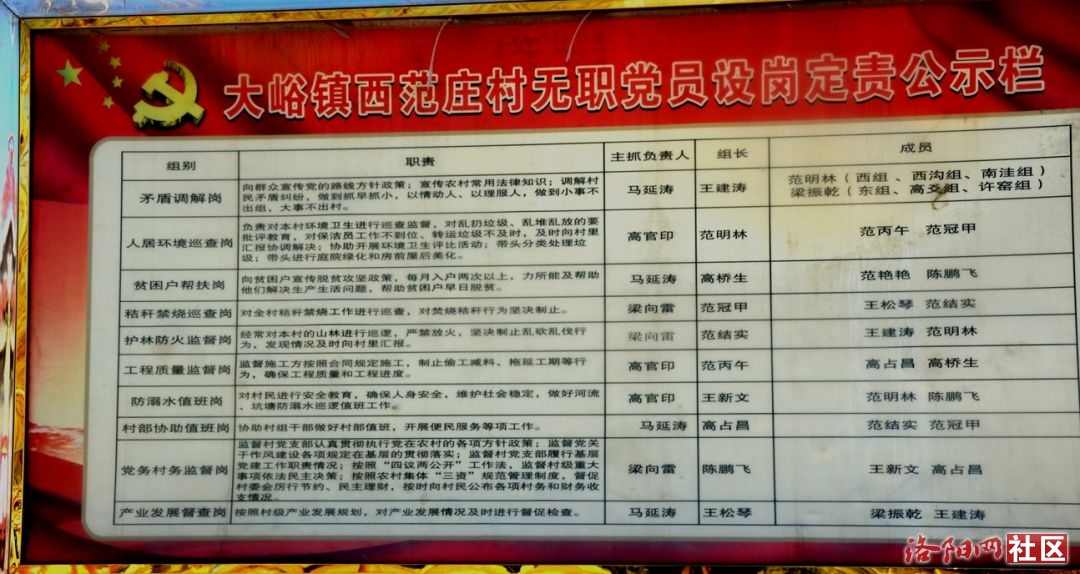 大峪镇西范庄村无职党员设岗定责公示栏
组别 职责 主抓负责人 组长 成员
矛盾调解岗
向群众宣传党的路线方针政策；宣传农村常用法律知识；调解村
民矛盾纠纷，做到抓早抓小，以情动人、以理服人，做到小事不
出组，大事不出村。
马延涛 王建涛
范明林（西组、西沟组、南洼组）
梁振乾（东组、高爻组、许窑组）
人居环境巡查岗
负责对本村环境卫生进行巡查监督，对乱扔垃圾、乱堆乱放的要
批评教育，对保洁员工作不到位、转运垃圾不及时，及时向村里
汇报协调解决；协助开展环境卫生评比活动；带头分类处理垃
圾；带头进行庭院绿化和房前屋后美化。
高官印 范明林 范丙午 范冠甲
贫困户帮扶岗
向贫困户宣传脱贫攻坚政策，每月入户两次以上，力所能及帮助
他们解决生产生活问题，帮助贫困户早日脱贫。
马延涛 高桥生 范艳艳 陈鹏飞
秸秆禁烧巡查岗
对全村秸秆禁烧工作进行巡查，对焚烧秸秆行为坚决制止。
梁向雷 范冠甲 王松琴 范结实
护林防火监督岗
经常对本村的山林进行巡逻，严禁放火，坚决制止乱砍乱伐行
为，发现情况及时向村里汇报。
梁向雷 范结实 王建涛 范明林
工程质量监督岗
监督施工方按照合同规定施工，制止偷工减料、拖延工期等行
为，确保工程质量和工程进度。
高官印 范丙午 高占昌 高桥生
防溺水值班岗
对村民进行安全教育，确保人身安全，维护社会稳定，做好河流
、坑塘防溺水巡逻值班工作。
高官印 王新文 范明林 陈鹏飞
村部协助值班岗
协助村组干部做好村部值班，开展便民服务等项工作。
马延涛 高占昌 范结实 范冠甲
党务村务监督岗
监督村党支部认真贯彻执行党在农村的各项方针政策；监督党关
于作风建设各项规定在基层的贯彻落实；监督村党支部履行基层
党建工作职责情况；按照“四议两公开”工作法，监督村级重大
事项依法民主决策；按照农村集体“三资”规范管理制度，督促
村委会厉行节约、民主理财，按时向村民公布各项村务和财务收
支情况。
梁向雷 陈鹏飞 王新文 高占昌
产业发展督查岗
按照村级产业发展规划，对产业发展情况及时进行督促检查。
马延涛 王松琴 梁振乾 王建涛
洛阳网社区